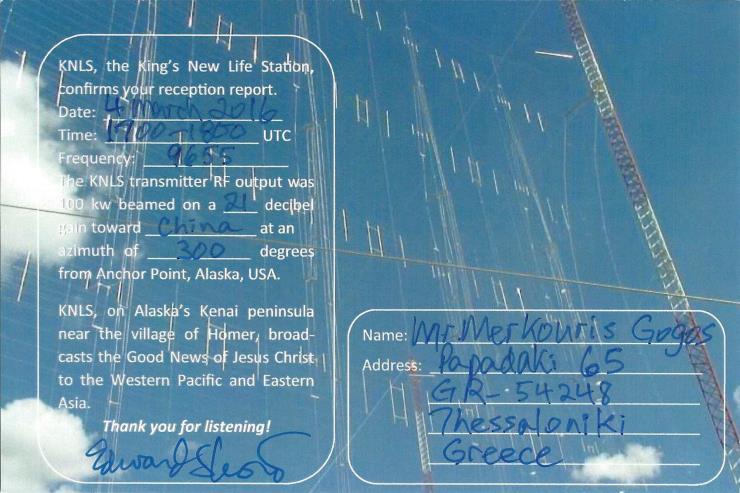 KNLS, the King's New Life Station,
confirms your reception report.
Date: 4 March 2016
Time: 1700-1800 UTC
Frequency: 9655
The KNLS transmitter RF output was
100 kw beamed on a 21 decibel
gain toward China at an
azimuth of 300 degrees
from Anchor Point, Alaska, USA.
KNLS, on Alaska's Kenai peninsula
near the village of Homer, broad-
casts the Good News of Jesus Christ
to the Western Pacific and Eastern
Asia.
Thank you for listening!
Edward
Name: Mr. Merkouris Gogos
Address: Papadaki 65
GR-54248
Thessaloniki
Greece